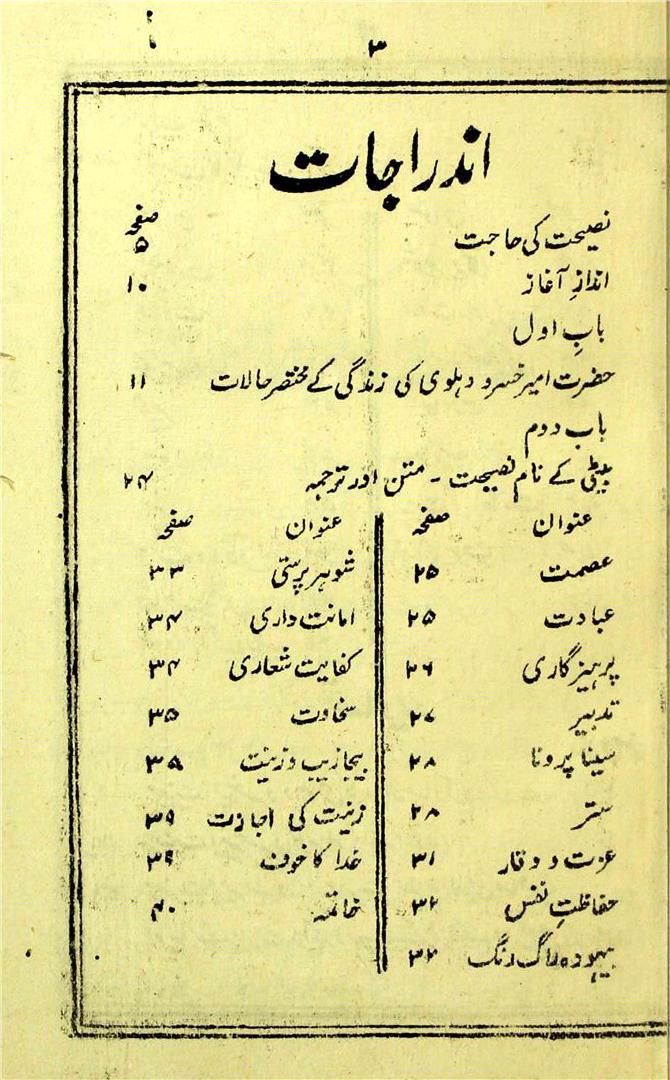 ۳
اندراجات
صفحہ
نصیحت کی حاجت ۵
اندازِ آغاز ۱۰
بابِ اول
حضرت امیر خسرو دہلوی کی زندگی کے مختصر حالات ۱۱
باب دوم
بیٹی کے نام نصیحت ۔ متن اور ترجمہ ۲۴
عنوان صفحہ
عصمت ۲۵
عبادت ۲۵
پرہیزگاری ۲۶
تدبیر ۲۷
سینا پرونا ۲۸
ستر ۲۸
عزت و وقار ۳۱
حفاظتِ نفس ۳۲
بیہودہ راگ رنگ ۳۲
عنوان صفحہ
شوہر پرستی ۳۳
امانت داری ۳۴
کفایت شعاری ۳۴
سخاوت ۳۵
بیجا زیب و زینت ۳۵
زینت کی اجازت ۳۹
خدا کا خوف ۳۹
خاتمہ ۴۰